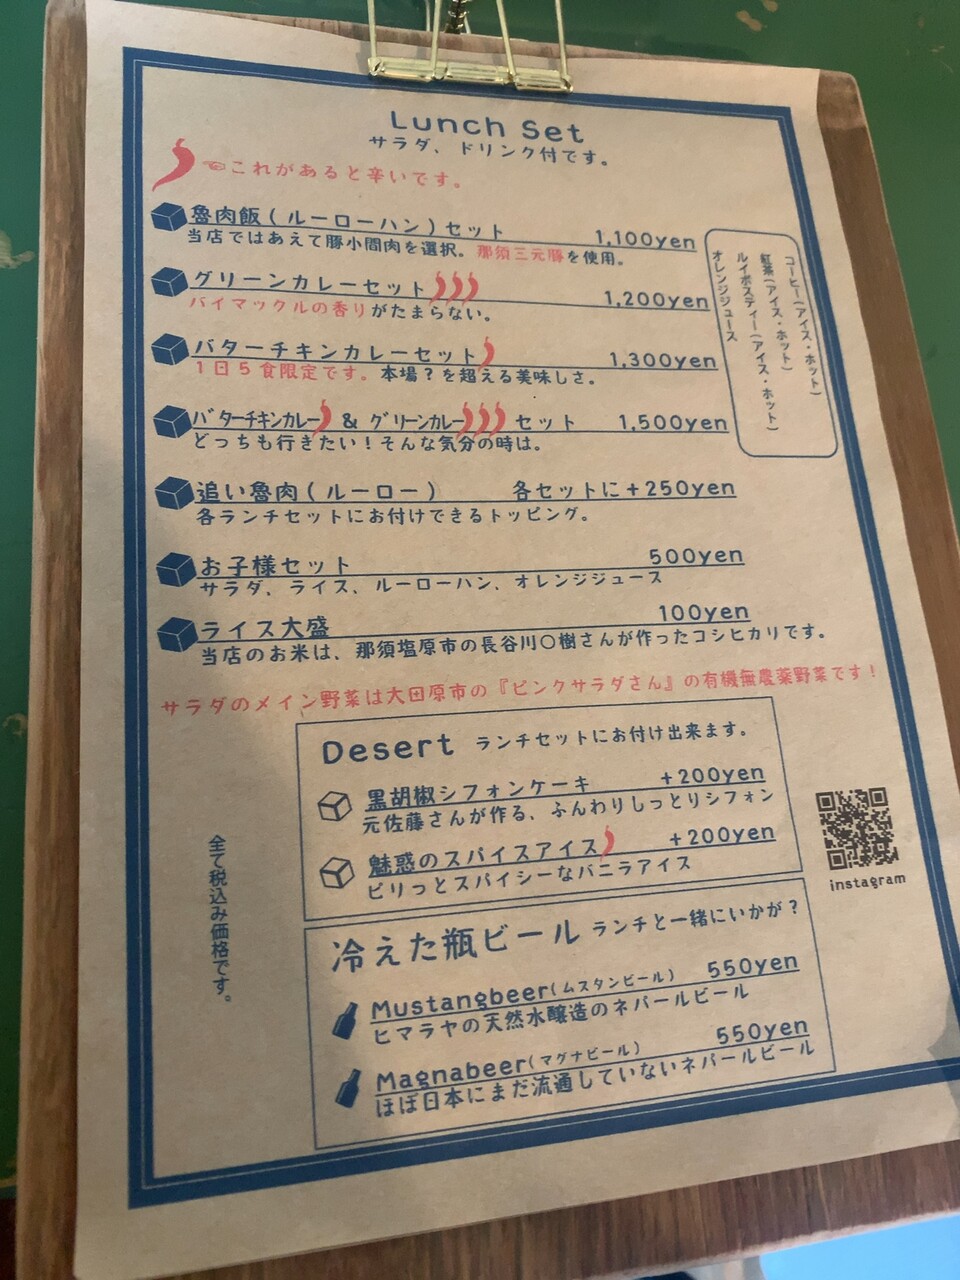 Lunch Set
サラダ、ドリンク付です。
☜これがあると辛いです。
魯肉飯(ルーローハン)セット 1,100yen
当店ではあえて豚小間肉を選択。那須三元豚を使用。
グリーンカレーセット 1,200yen
バイマックルの香りがたまらない。
バターチキンカレーセット 1,300yen
1日5食限定です。本場?を超える美味しさ。
バターチキンカレー & グリーンカレー セット 1,500yen
どっちも行きたい!そんな気分の時は。
コーヒー(アイス・ホット)
紅茶(アイス・ホット)
ルイボスティー(アイス・ホット)
オレンジジュース
追い魯肉(ルーロー) 各セットに+250yen
各ランチセットにお付けできるトッピング。
お子様セット 500yen
サラダ、ライス、ルーローハン、オレンジジュース
ライス大盛 100yen
当店のお米は、那須塩原市の長谷川〇樹さんが作ったコシヒカリです。
サラダのメイン野菜は大田原市の『ピンクサラダさん』の有機無農薬野菜です!
Desert ランチセットにお付け出来ます。
黒胡椒シフォンケーキ +200yen
元佐藤さんが作る、ふんわりしっとりシフォン
魅惑のスパイスアイス +200yen
ピリっとスパイシーなバニラアイス
instagram
全て税込み価格です。
冷えた瓶ビール ランチと一緒にいかが?
Mustangbeer(ムスタンビール) 550yen
ヒマラヤの天然水醸造のネパールビール
Magnabeer(マグナビール) 550yen
ほぼ日本にまだ流通していないネパールビール